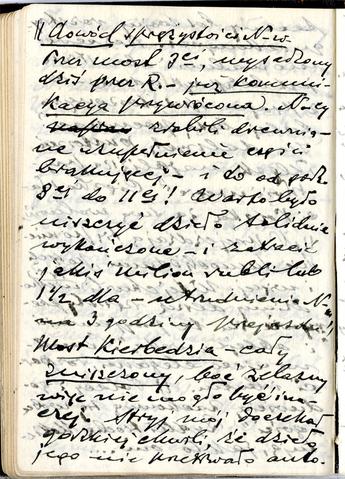 || Dowód sprężystości N-w.
Przez most 3ci, wysadzony
dziś przez R. – już komuni-
kacya przywrócona. N-cy
zrobili drewnia-
ne uzupełnienie części
brakującej – i to od godz.
8ej do 11ej! Warto było
niszczyć dzieło solidnie
wykończone – i zatracić
jakiś milion rubli lub
1½, dla – utrudnienia N-
na 3 godziny przejazdu!
Most Kierbedzia – cały
zniszczony, boć żelazny
więc nie mogło być ina-
czej. Stryj mój doczekał
gorzkiej chwili, że dzieło
jego – nie przetrwało auto.